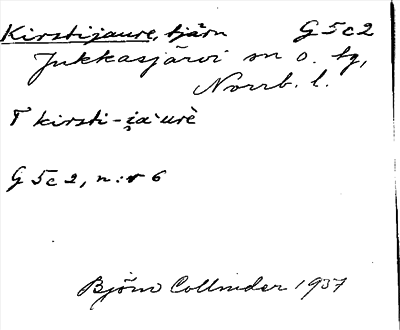 Kirstijaure, tjärn G 5 c 2
Jukkasjärvi sn o. tg,
Norrb. l.
T kirsti-i̯a'urè
G 5c 2, n:r 6
Björn Collinder 1937